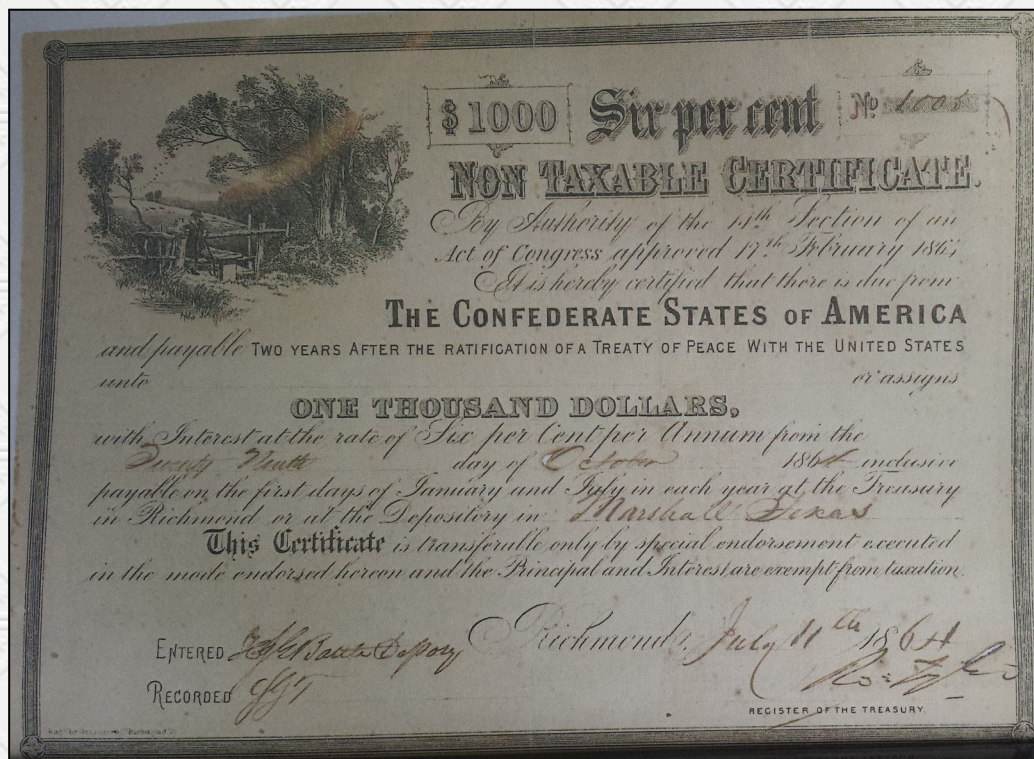 $ 1000 Six per cent No
NON TAXABLE CERTIFICATE.
By Authority of the 14th Section of an
Act of Congress approved 17th February 1864,
It is hereby certified that there is due from
THE CONFEDERATE STATES OF AMERICA
and payable TWO YEARS AFTER THE RATIFICATION OF A TREATY OF PEACE WITH THE UNITED STATES
unto or assigns
ONE THOUSAND DOLLARS,
with Interest at the rate of Six per Cent per Annum from the
Twenty Ninth day of October 1864 inclusive
payable on the first days of January and July in each year at the Treasury
in Richmond or at the Depository in Marshall Texas
This Certificate is transferable only by special endorsement executed
in the mode endorsed hereon and the Principal and Interest are exempt from taxation.
Richmond, July 11th 1864
ENTERED
RECORDED
Ro: Tyler
REGISTER OF THE TREASURY.